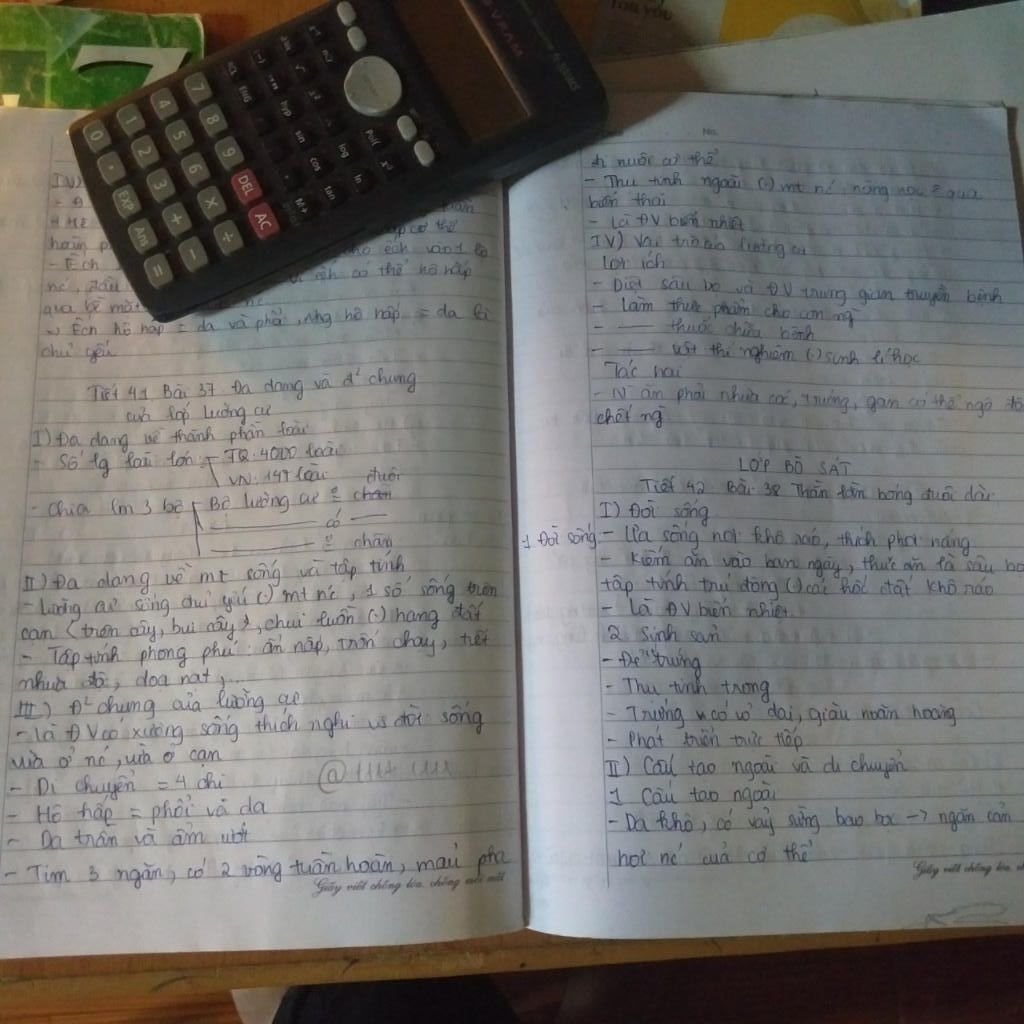 7
FOR YOU
VIETNAM
ENG
hyp
sin
cos
tan
log
ln
Pol(
M+
7 8 9 DEL AC
4 5 6 × ÷
1 2 3 + −
0 . EXP Ans =
IV)
hoàn
- Ếch
ếch vào 1 lọ
nć, đầu
có thể hô hấp
qua bề mặt
→ Ếch hô hấp = da và phổi, nhg hô hấp = da là
chủ yếu
Tiết 41 Bài 37. Đa dạng và đ² chung
của lớp lưỡng cư
I) Đa dạng về thành phần loài
- Số lg loài lớn: TG. 4000 loài
VN: 147 loài
- Chia lm 3 bộ Bộ lưỡng cư ∘ đuôi
có
chân
II) Đa dạng về mt sống và tập tính
- Lưỡng cư sống chủ yếu (.) mt nć, 1 số sống trên
cạn (trên cây, bụi cây), chui luồn (.) hang đất
- Tập tính phong phú: ẩn nấp, trốn chạy, tiết
nhựa độc, doạ nạt,...
III) Đ² chung của lưỡng cư
- Là ĐV có xương sống thích nghi vs đời sống
vừa ở nć, vừa ở cạn
- Di chuyển = 4 chi
- Hô hấp = phổi và da
- Da trần và ẩm ướt
- Tim 3 ngăn, có 2 vòng tuần hoàn, máu pha
Giấy viết chống lóa, chống mỏi mắt
No.
đi nuôi cơ thể
- Thụ tinh ngoài (.) mt nć, nòng nọc qua
biến thái
- Là ĐV biến nhiệt
IV) Vai trò của lưỡng cư
Lợi ích
- Diệt sâu bọ và ĐV trung gian truyền bệnh
- Làm thực phẩm cho con ng
- —— thuốc chữa bệnh
- —— vật thí nghiệm (.) sinh lí học
Tác hại
- N ăn phải nhựa cóc, trứng, gan có thể ngộ độ
chết ng
LỚP BÒ SÁT
Tiết 42 Bài 38 Thằn lằn bóng đuôi dài
I) Đời sống
1. Đời sống - Ưa sống nơi khô ráo, thích phơi nắng
- Kiếm ăn vào ban ngày, thức ăn là sâu bọ
tập tính trú đông (.) các hốc đất khô ráo
- Là ĐV biến nhiệt
2. Sinh sản
- Đẻ trứng
- Thụ tinh trong
- Trứng có vỏ dai, giàu noãn hoàng
- Phát triển trực tiếp
II) Cấu tạo ngoài và di chuyển
1 Cấu tạo ngoài
- Da khô, có vảy sừng bao bọc → ngăn cản
hơi nć của cơ thể
Giấy viết chống lóa,